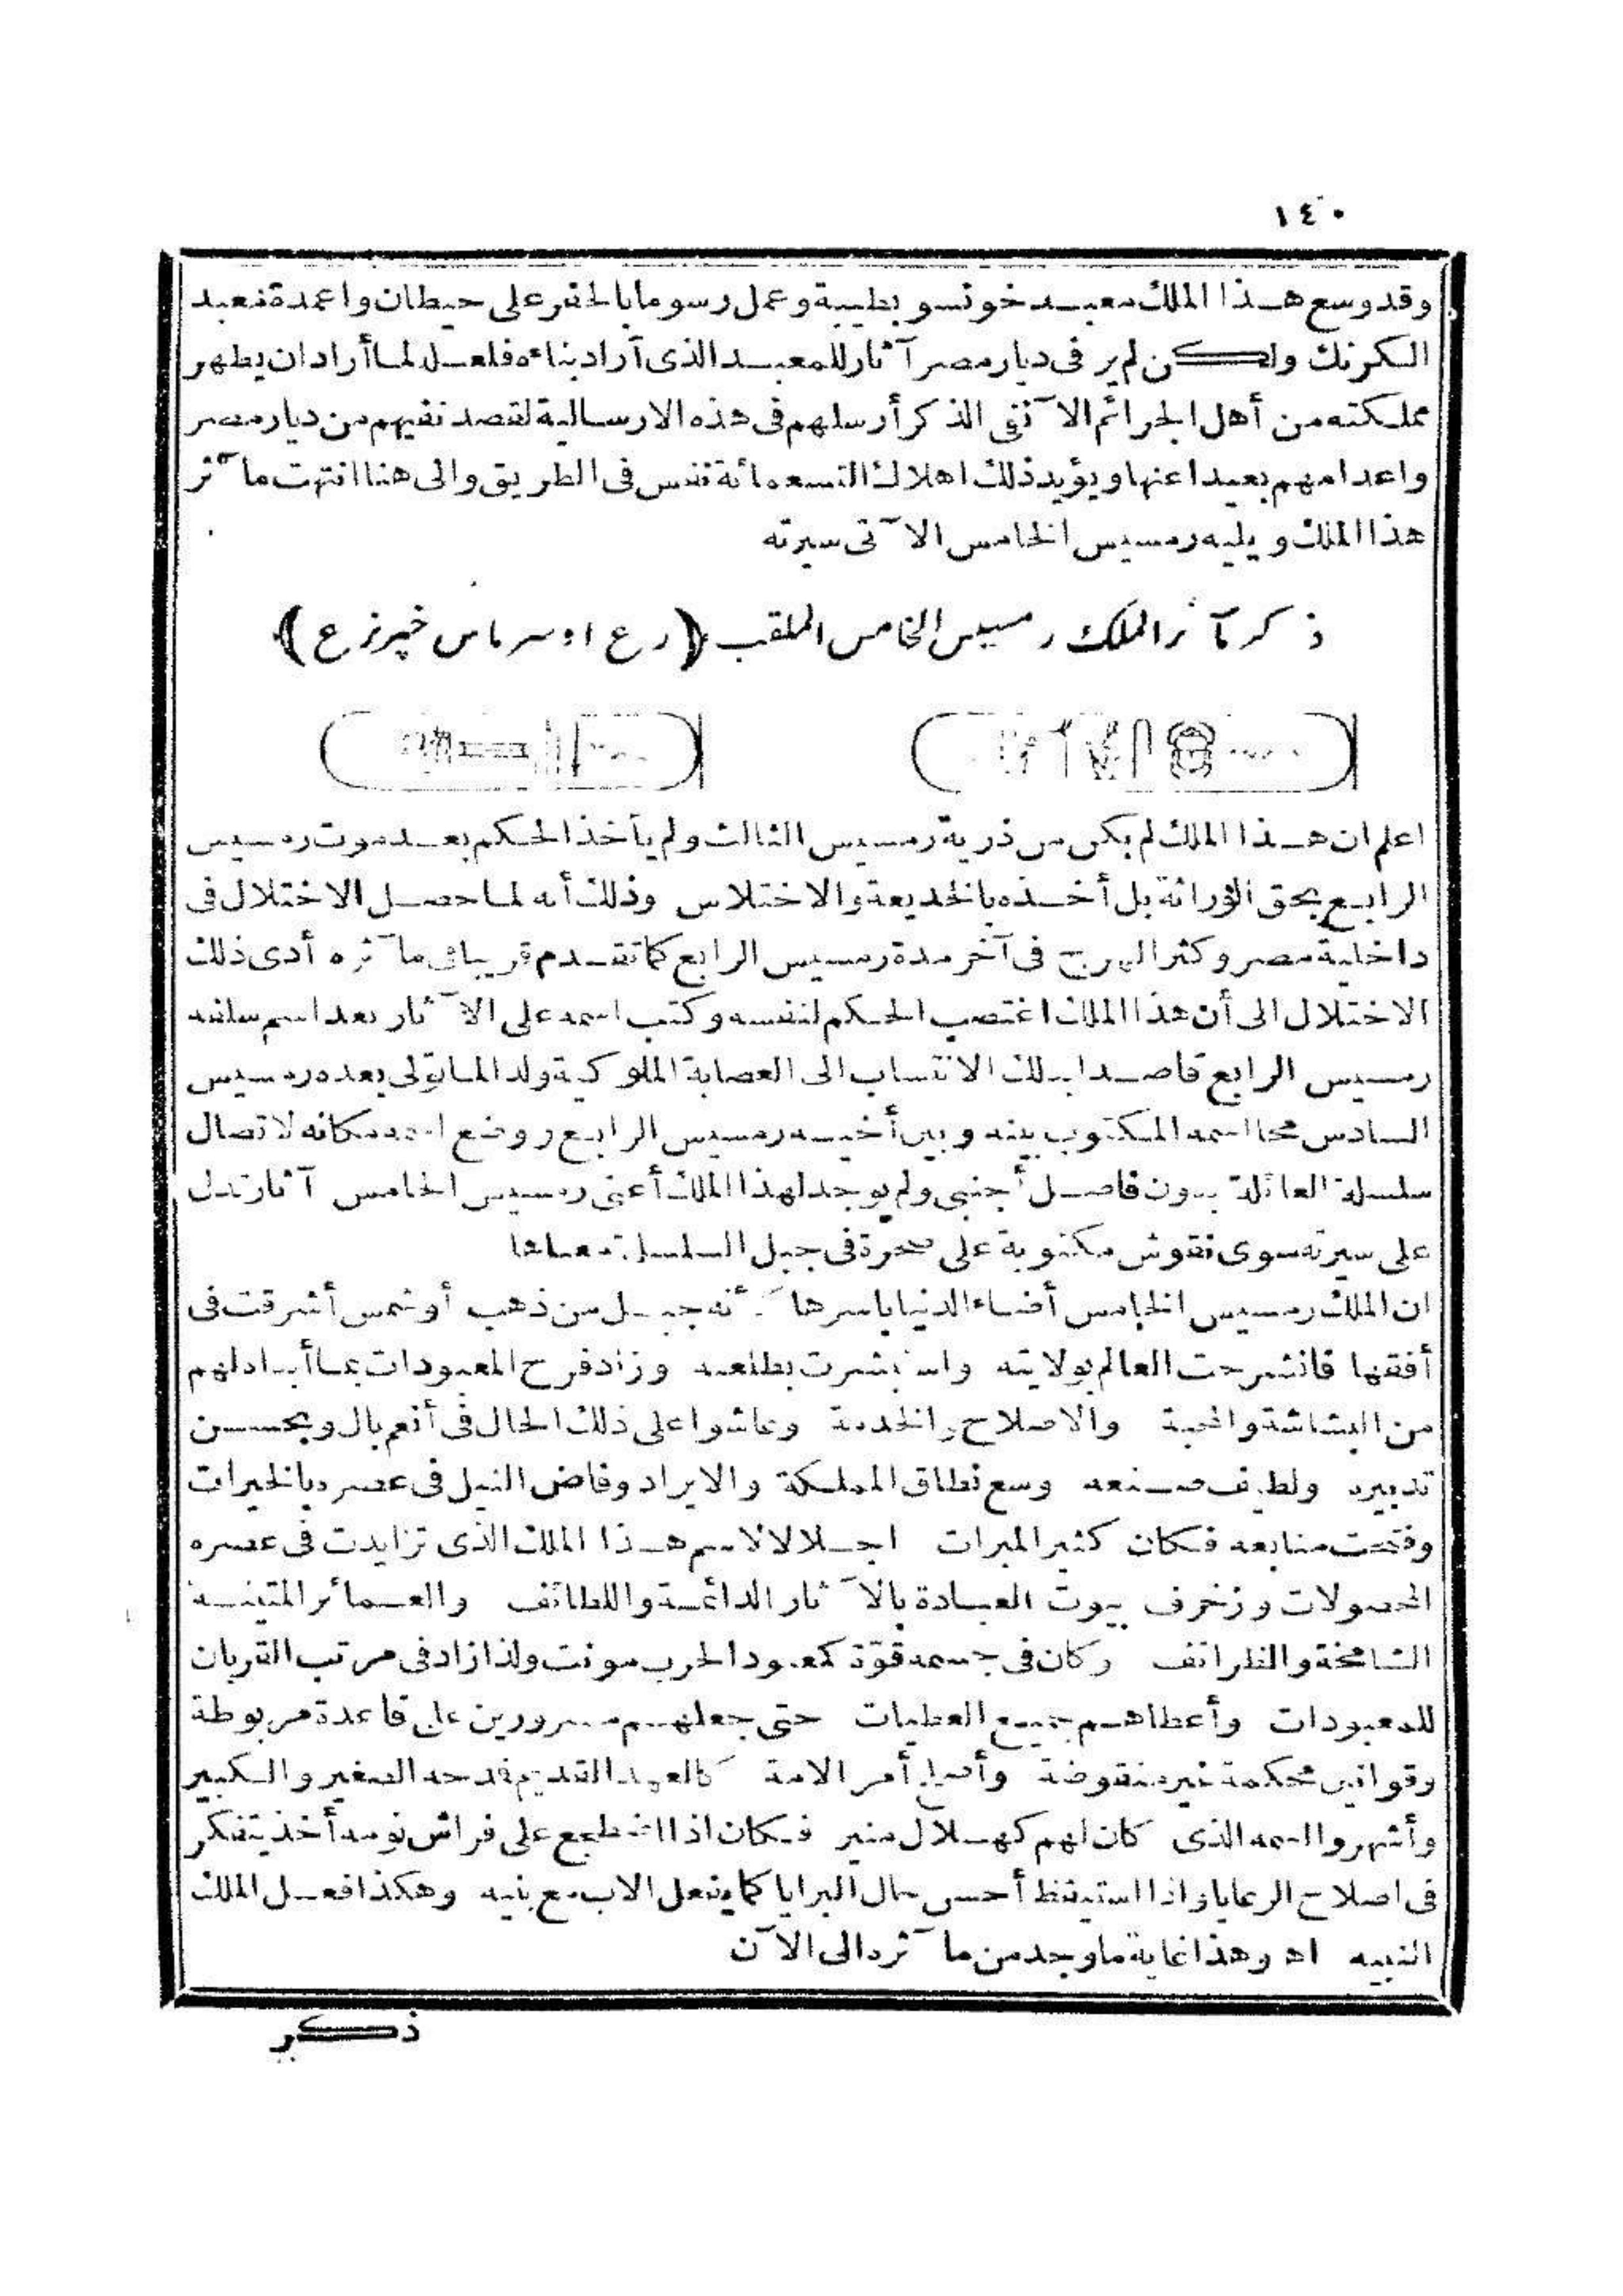 ١٤٠
وقد وسع هذا الملك معبد خونسو بطيبة وعمل رسوما بالحفر على حيطان واعمدة معبد
الكرنك ولكن لم ير فى ديار مصر آثار للمعبد الذى أراد بناءه فلعل لما أراد ان يطهر
مملكته من أهل الجرائم الآنفى الذكر أرسلهم فى هذه الارسالية لقصد نفيهم من ديار مصر
واعدامهم بعيدا عنها ويؤيد ذلك اهلاك التسعمائة نفس فى الطريق والى هنا انتهت مآثر
هذا الملك ويليه رمسيس الخامس الآتى سيرته
ذكر مآثر الملك رمسيس الخامس الملقب (رع اوسرماس خپرنرع)
اعلم ان هذا الملك لم يكن من ذرية رمسيس الثالث ولم يأخذ الحكم بعد موت رمسيس
الرابع بحق الوراثة بل أخذه بالخديعة والاختلاس وذلك أنه لما حصل الاختلال فى
داخلية مصر وكثر الهرج فى آخر مدة رمسيس الرابع كما تقدم قريبا فى مآثره أدى ذلك
الاختلال الى أن هذا الملك اغتصب الحكم لنفسه وكتب اسمه على الآثار بعد اسم سلفه
رمسيس الرابع قاصدا بذلك الانتساب الى العصابة الملوكية ولذا لما تولى بعده رمسيس
السادس محا اسمه المكتوب بينه وبين أخيه رمسيس الرابع ووضع اسمه مكانه لاتصال
سلسلة العائلة بدون فاصل أجنبى ولم يوجد لهذا الملك أعنى رمسيس الخامس آثار تدل
على سيرته سوى نقوش مكتوبة على صخرة فى جبل السلسلة معناها
ان الملك رمسيس الخامس أضاء الدنيا باسرها كأنه جبل من ذهب أو شمس أشرقت فى
أفقها فانشرحت العالم بولايته واستبشرت بطلعته وزاد فرح المعبودات بما أبداه لهم
من البشاشة والمحبة والاصلاح والخدمة وعاشوا على ذلك الحال فى أنعم بال وبحسن
تدبيره ولطيف صنعه وسع نطاق المملكة والايراد وفاض النيل فى عصره بالخيرات
وفتحت منابعه فكان كثير المبرات اجلالا لاسم هذا الملك الذى تزايدت فى عصره
المحصولات وزخرف بيوت العبادة بالآثار الدائمة واللطائف والعمائر المتينة
الشامخة والظرائف وكان فى جسمه قوّة كمعبود الحرب مونت ولذا زاد فى مرتب القربان
للمعبودات وأعطاهم جميع العطيات حتى جعلهم مسرورين على قاعدة مربوطة
وقوانين محكمة غير منقوضة وأصلح أمر الامة كالعهد القديم فمدحه الصغير والكبير
وأشهروا اسمه الذى كان لهم كهلال منير فكان اذا اضطجع على فراش نومه أخذ يتفكر
فى اصلاح الرعايا واذا استيقظ أحسن حال البرايا كما يفعل الاب مع بنيه وهكذا فعل الملك
النبيه اه وهذا غاية ما وجد من مآثره الى الآن
ذكر